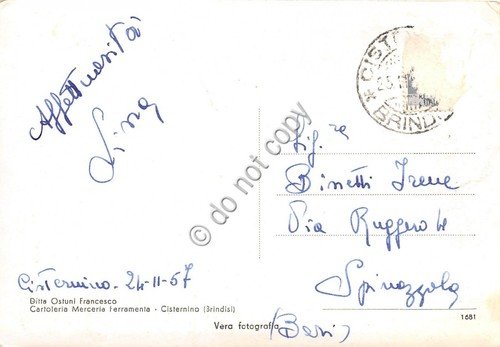 Affettuosità
Lina
CISTE
BRINDI
Sig.ra
Binetti Irene
Via Ruggero 14
Spinazzola
(Bari)
Cisternino - 24-11-57
Ditta Ostuni Francesco
Cartoleria Merceria Ferramenta - Cisternino (Brindisi)
Vera fotografia
1681
© do not copy